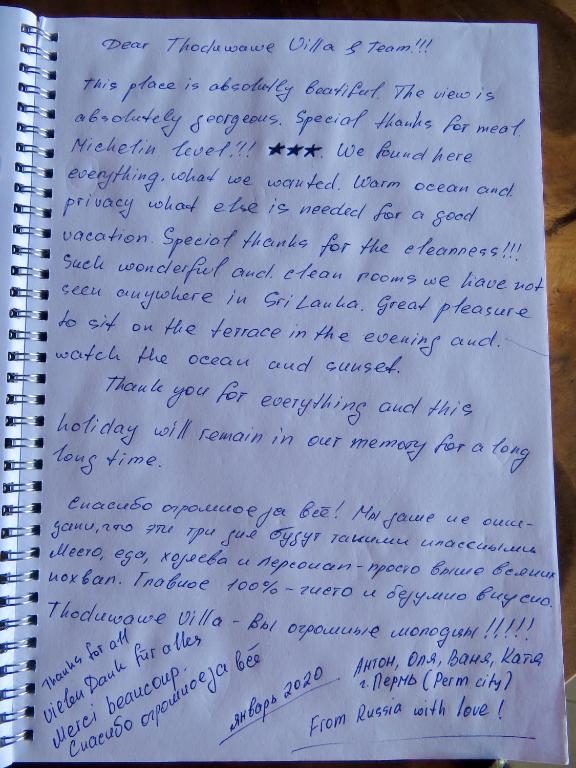 Dear Thoduwawe Villa & Team!!!
This place is absolutly beatiful. The view is
absolutely georgeous. Special thanks for meal.
Michelin level!!! ★★★. We found here
everything, what we wanted. Warm ocean and
privacy what else is needed for a good
vacation. Special thanks for the cleanness!!!
Such wonderful and clean rooms we have not
seen anywhere in Sri Lanka. Great pleasure
to sit on the terrace in the evening and
watch the ocean and sunset.
Thank you for everything and this
holiday will remain in our memory for a long
long time.
Спасибо огромное за всё! Мы даже не ожи-
дали, что эти три дня будут такими классными
Место, еда, хозяева и персонал - просто выше всяких
похвал. Главное 100% - чисто и безумно вкусно.
Thoduwawe Villa - Вы огромные молодцы!!!!!
Thanks for all
Vielen Dank für alles
Merci beaucoup.
Спасибо огромное за всё
январь 2020
Антон, Оля, Ваня, Катя
г. Пермь (Perm city)
From Russia with love!